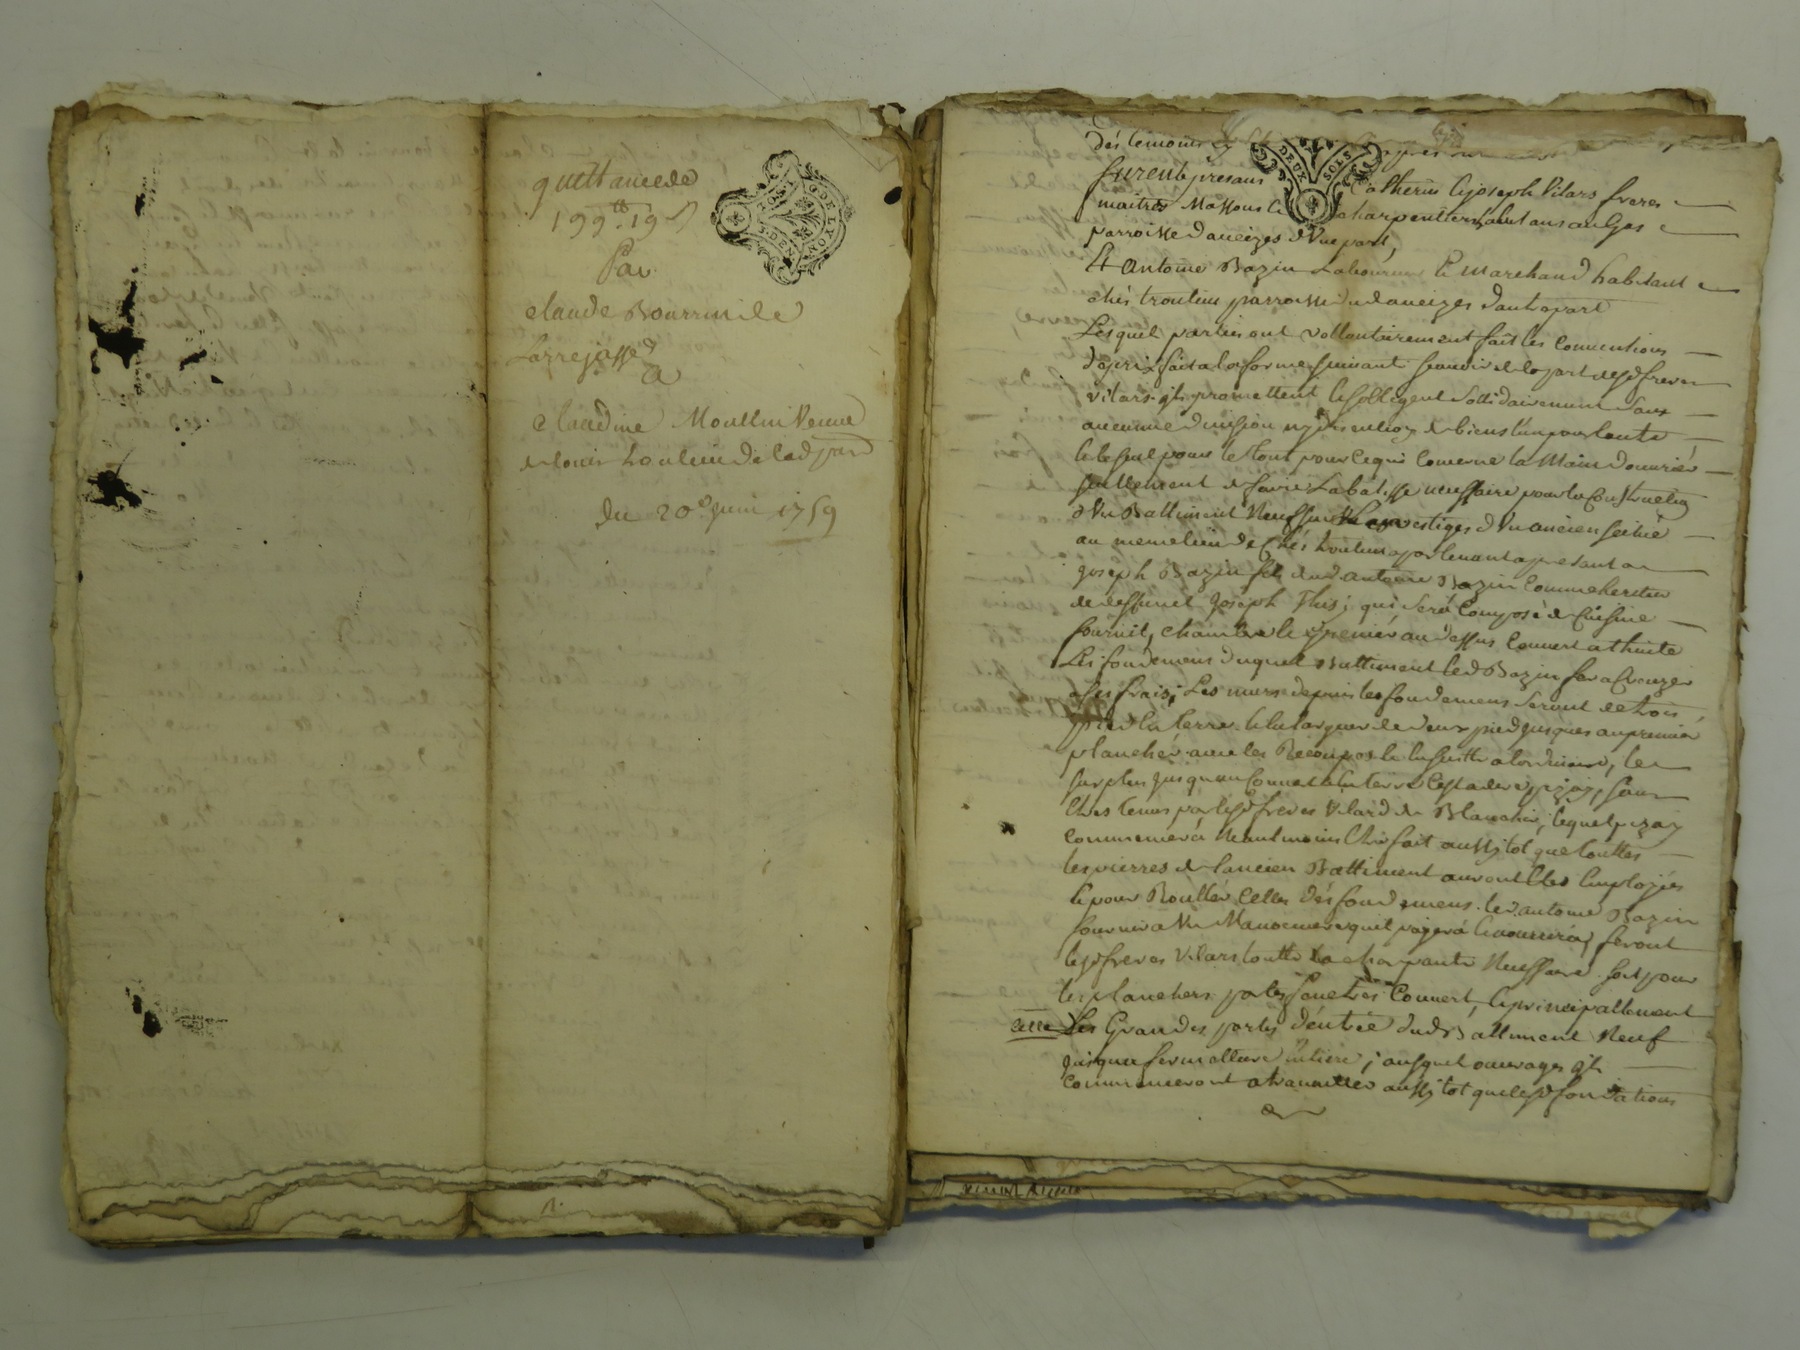 quittance de
199ᵗᵗ 19 s
Par
claude Bourrin de
Larrejasse
A
claudine Moullin Veuve
de louis houlieu de lad par
du 20ᵉ juin 1759
GDE LYON
DEUX SOLS
dés temoins
furent presans Catherin & joseph Vilars freres
maitres Massons & charpentiers habitans au Gas
parroisse daveizes d'Une part,
Et Antoine Bazin Laboureur & marchand habitant
chés troulieu parroisse dud aveizes dautre part
Lesquel parties ont vollontairement fait les conventions
de prix fait a la forme suivant scavoir de la part desd freres
vilars qls promettent & sobligent sollidairement sans
aucunne division ny discution de biens l'un pour l'autre
& le seul pour le tout pour ce qui concerne la Main d'ouvrier
seullement de faire La batisse necessaire pour la construction
d'Un Battiment Neuf sur les vestiges d'Un ancien
au meme lieu de chés troulieu apartenant apresant a
joseph Bazin fils dud antoine Bazin comme heritier
de deffunct joseph This; qui sera composé de Cuisine
fournil, chambre & grenier au dessus Couvert a thuile
Les fondemens duquel Battiment led Bazin fera Creuzer
a ses frais; Les murs depuis les fondemens seront de trois
pied la terre & la largueur de deux pied jusques au premier
planché avec les Recoupes & la suitte a lordinaire, le
surplus jusquau Couvert a la terre Cestadire pizay, sans
Etres tenus par lesd freres Vilard de Blanchir; lequel pizay
commencera Neantmoins Etre fait aussitot que touttes
les pierres de l'ancien Battiment auront Etes Employés
& pour Roullér Celles dés fondemens. led antoine Bazin
fournira Un Manoeuvre quil payera & nourrira, feront
lesd freres Vilars toutte La charpante Necessaire soit pour
les planchers portes fenetres Couvert, & principallement
celle Les Grandes portes d'éntrée dud Battiment Neuf
jusqua fermetture Entiere; ausquel ouvrages ils
Commenceront a travailler aussitot que lesd fondations